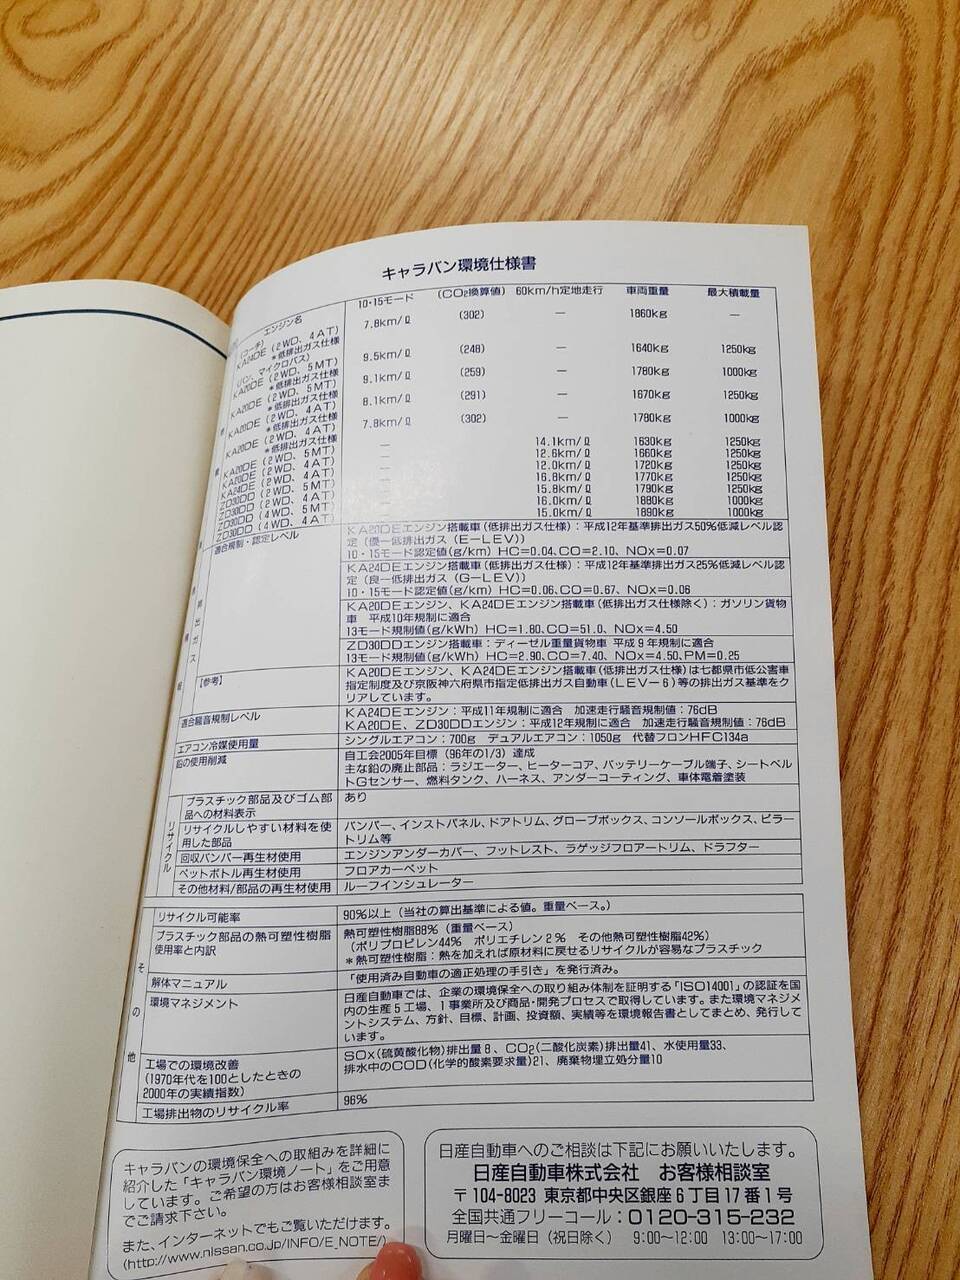 キャラバン環境仕様書
エンジン名 10・15モード (CO2換算値) 60km/h定地走行 車両重量 最大積載量
(コーチ)
KA24DE (2WD、4AT) 7.8km/ℓ (302) — 1860kg —
*低排出ガス仕様
(バン、マイクロバス)
KA20DE (2WD、5MT) 9.5km/ℓ (248) — 1640kg 1250kg
*低排出ガス仕様
KA20DE (2WD、5MT) 9.1km/ℓ (259) — 1780kg 1000kg
*低排出ガス仕様
KA20DE (2WD、4AT) 8.1km/ℓ (291) — 1670kg 1250kg
*低排出ガス仕様
KA20DE (2WD、4AT) 7.8km/ℓ (302) — 1780kg 1000kg
*低排出ガス仕様
KA20DE (2WD、5MT) — 14.1km/ℓ 1630kg 1250kg
KA20DE (2WD、4AT) — 12.6km/ℓ 1660kg 1250kg
KA24DE (2WD、4AT) — 12.0km/ℓ 1720kg 1250kg
ZD30DD (2WD、5MT) — 16.8km/ℓ 1770kg 1250kg
ZD30DD (2WD、4AT) — 15.8km/ℓ 1790kg 1250kg
ZD30DD (4WD、5MT) — 16.0km/ℓ 1880kg 1000kg
ZD30DD (4WD、4AT) — 15.0km/ℓ 1890kg 1000kg
排出ガス
適合規制・認定レベル
KA20DEエンジン搭載車(低排出ガス仕様):平成12年基準排出ガス50%低減レベル認
定(優−低排出ガス(E−LEV))
10・15モード認定値(g/km) HC=0.04、CO=2.10、NOx=0.07
KA24DEエンジン搭載車(低排出ガス仕様):平成12年基準排出ガス25%低減レベル認
定(良−低排出ガス(G−LEV))
10・15モード認定値(g/km) HC=0.06、CO=0.67、NOx=0.06
KA20DEエンジン、KA24DEエンジン搭載車(低排出ガス仕様除く):ガソリン貨物
車 平成10年規制に適合
13モード規制値(g/kWh) HC=1.80、CO=51.0、NOx=4.50
ZD30DDエンジン搭載車:ディーゼル重量貨物車 平成9年規制に適合
13モード規制値(g/kWh) HC=2.90、CO=7.40、NOx=4.50、PM=0.25
【参考】
KA20DEエンジン、KA24DEエンジン搭載車(低排出ガス仕様)は七都県市低公害車
指定制度及び京阪神六府県市指定低排出ガス自動車(LEV−6)等の排出ガス基準をク
リアしています。
適合騒音規制レベル
KA24DEエンジン:平成11年規制に適合 加速走行騒音規制値:76dB
KA20DE、ZD30DDエンジン:平成12年規制に適合 加速走行騒音規制値:76dB
エアコン冷媒使用量 シングルエアコン:700g デュアルエアコン:1050g 代替フロンHFC134a
鉛の使用削減
自工会2005年目標(96年の1/3)達成
主な鉛の廃止部品:ラジエーター、ヒーターコア、バッテリーケーブル端子、シートベル
トGセンサー、燃料タンク、ハーネス、アンダーコーティング、車体電着塗装
リサイクル
プラスチック部品及びゴム部 あり
品への材料表示
リサイクルしやすい材料を使 バンパー、インストパネル、ドアトリム、グローブボックス、コンソールボックス、ピラー
用した部品 トリム等
回収バンパー再生材使用 エンジンアンダーカバー、フットレスト、ラゲッジフロアートリム、ドラフター
ペットボトル再生材使用 フロアカーペット
その他材料/部品の再生材使用 ルーフインシュレーター
その他
リサイクル可能率 90%以上(当社の算出基準による値。重量ベース。)
プラスチック部品の熱可塑性樹脂 熱可塑性樹脂88%(重量ベース)
使用率と内訳 (ポリプロピレン44% ポリエチレン2% その他熱可塑性樹脂42%)
*熱可塑性樹脂:熱を加えれば原材料に戻せるリサイクルが容易なプラスチック
解体マニュアル 「使用済み自動車の適正処理の手引き」を発行済み。
環境マネジメント
日産自動車では、企業の環境保全への取り組み体制を証明する「ISO14001」の認証を国
内の生産5工場、1事業所及び商品・開発プロセスで取得しています。また環境マネジメ
ントシステム、方針、目標、計画、投資額、実績等を環境報告書としてまとめ、発行して
います。
工場での環境改善 SOx(硫黄酸化物)排出量8、CO2(二酸化炭素)排出量41、水使用量33、
(1970年代を100としたときの 排水中のCOD(化学的酸素要求量)21、廃棄物埋立処分量10
2000年の実績指数)
工場排出物のリサイクル率 96%
キャラバンの環境保全への取組みを詳細に
紹介した「キャラバン環境ノート」をご用意
しています。ご希望の方はお客様相談室ま
でご請求下さい。
また、インターネットでもご覧いただけます。
(http://www.nissan.co.jp/INFO/E_NOTE/)
日産自動車へのご相談は下記にお願いいたします。
日産自動車株式会社 お客様相談室
〒104-8023 東京都中央区銀座6丁目17番1号
全国共通フリーコール:0120-315-232
月曜日〜金曜日(祝日除く) 9:00〜12:00 13:00〜17:00